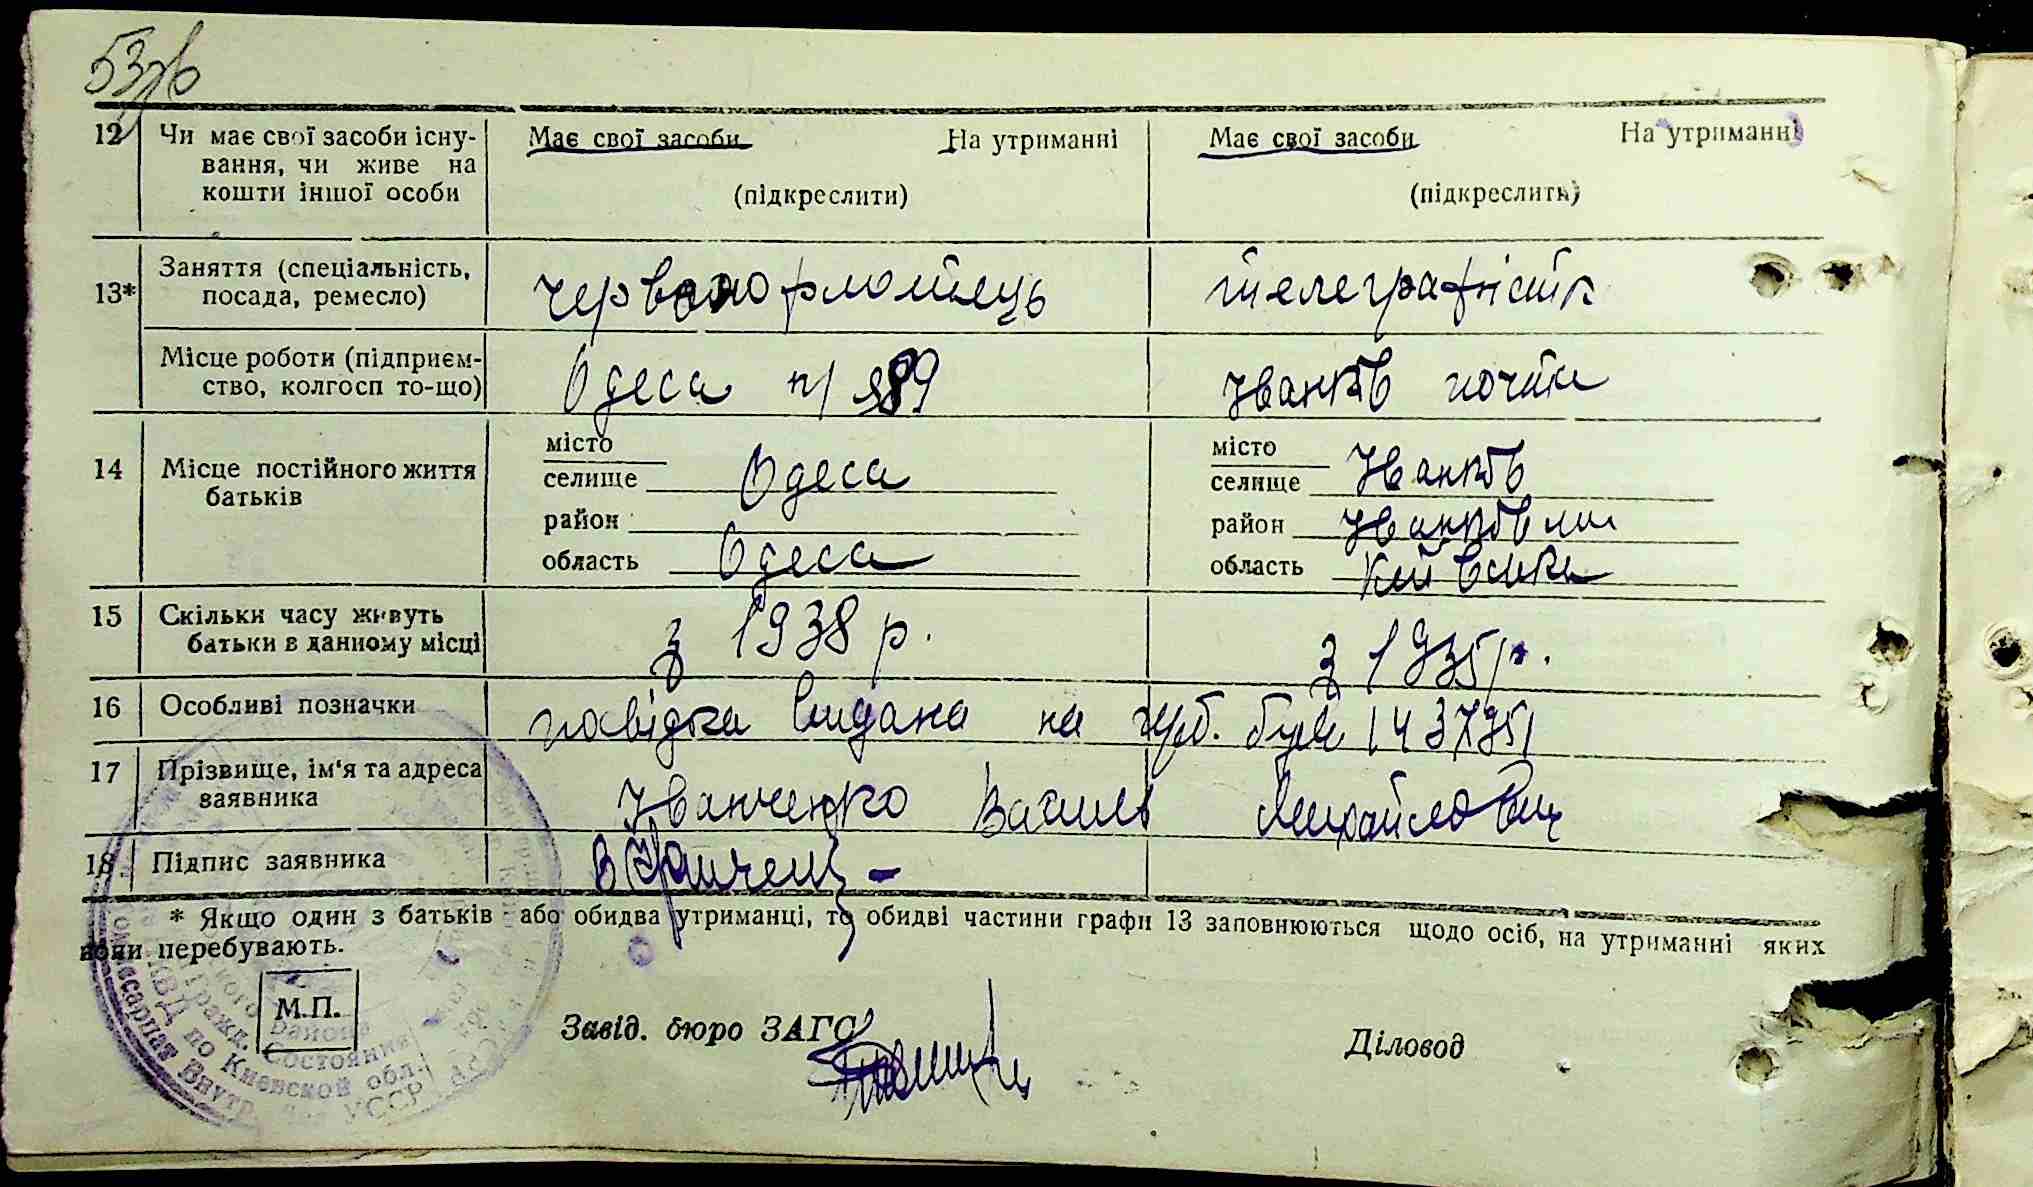 53зв
12 Чи має свої засоби існу- Має свої засоби На утриманні Має свої засоби На утриманні
вання, чи живе на
кошти іншої особи (підкреслити) (підкреслить)
13* Заняття (спеціальність, червоноармієць телеграфістка
посада, ремесло)
Місце роботи (підприєм- Одеса п/ 989 Іванків почта
ство, колгосп то-що)
місто місто
14 Місце постійного життя селище Одеса селище Іванків
батьків
район район Іванківський
область Одеса область Київська
15 Скільки часу живуть з 1938 р. з 1935 р.
батьки в данному місці
16 Особливі позначки повідка видана на герб. бум. 1437951
17 Прізвище, ім'я та адреса Іванченко Василь Михайлович
заявника
18 Підпис заявника В Іванченко
* Якщо один з батьків або обидва утриманці, то обидві частини графи 13 заповнюються щодо осіб, на утриманні яких
вони перебувають.
М.П.
Завід. бюро ЗАГС Діловод
комиссариат Внутр.
НКВД по Киевской обл.
Гражд. Состояния
района
УССР